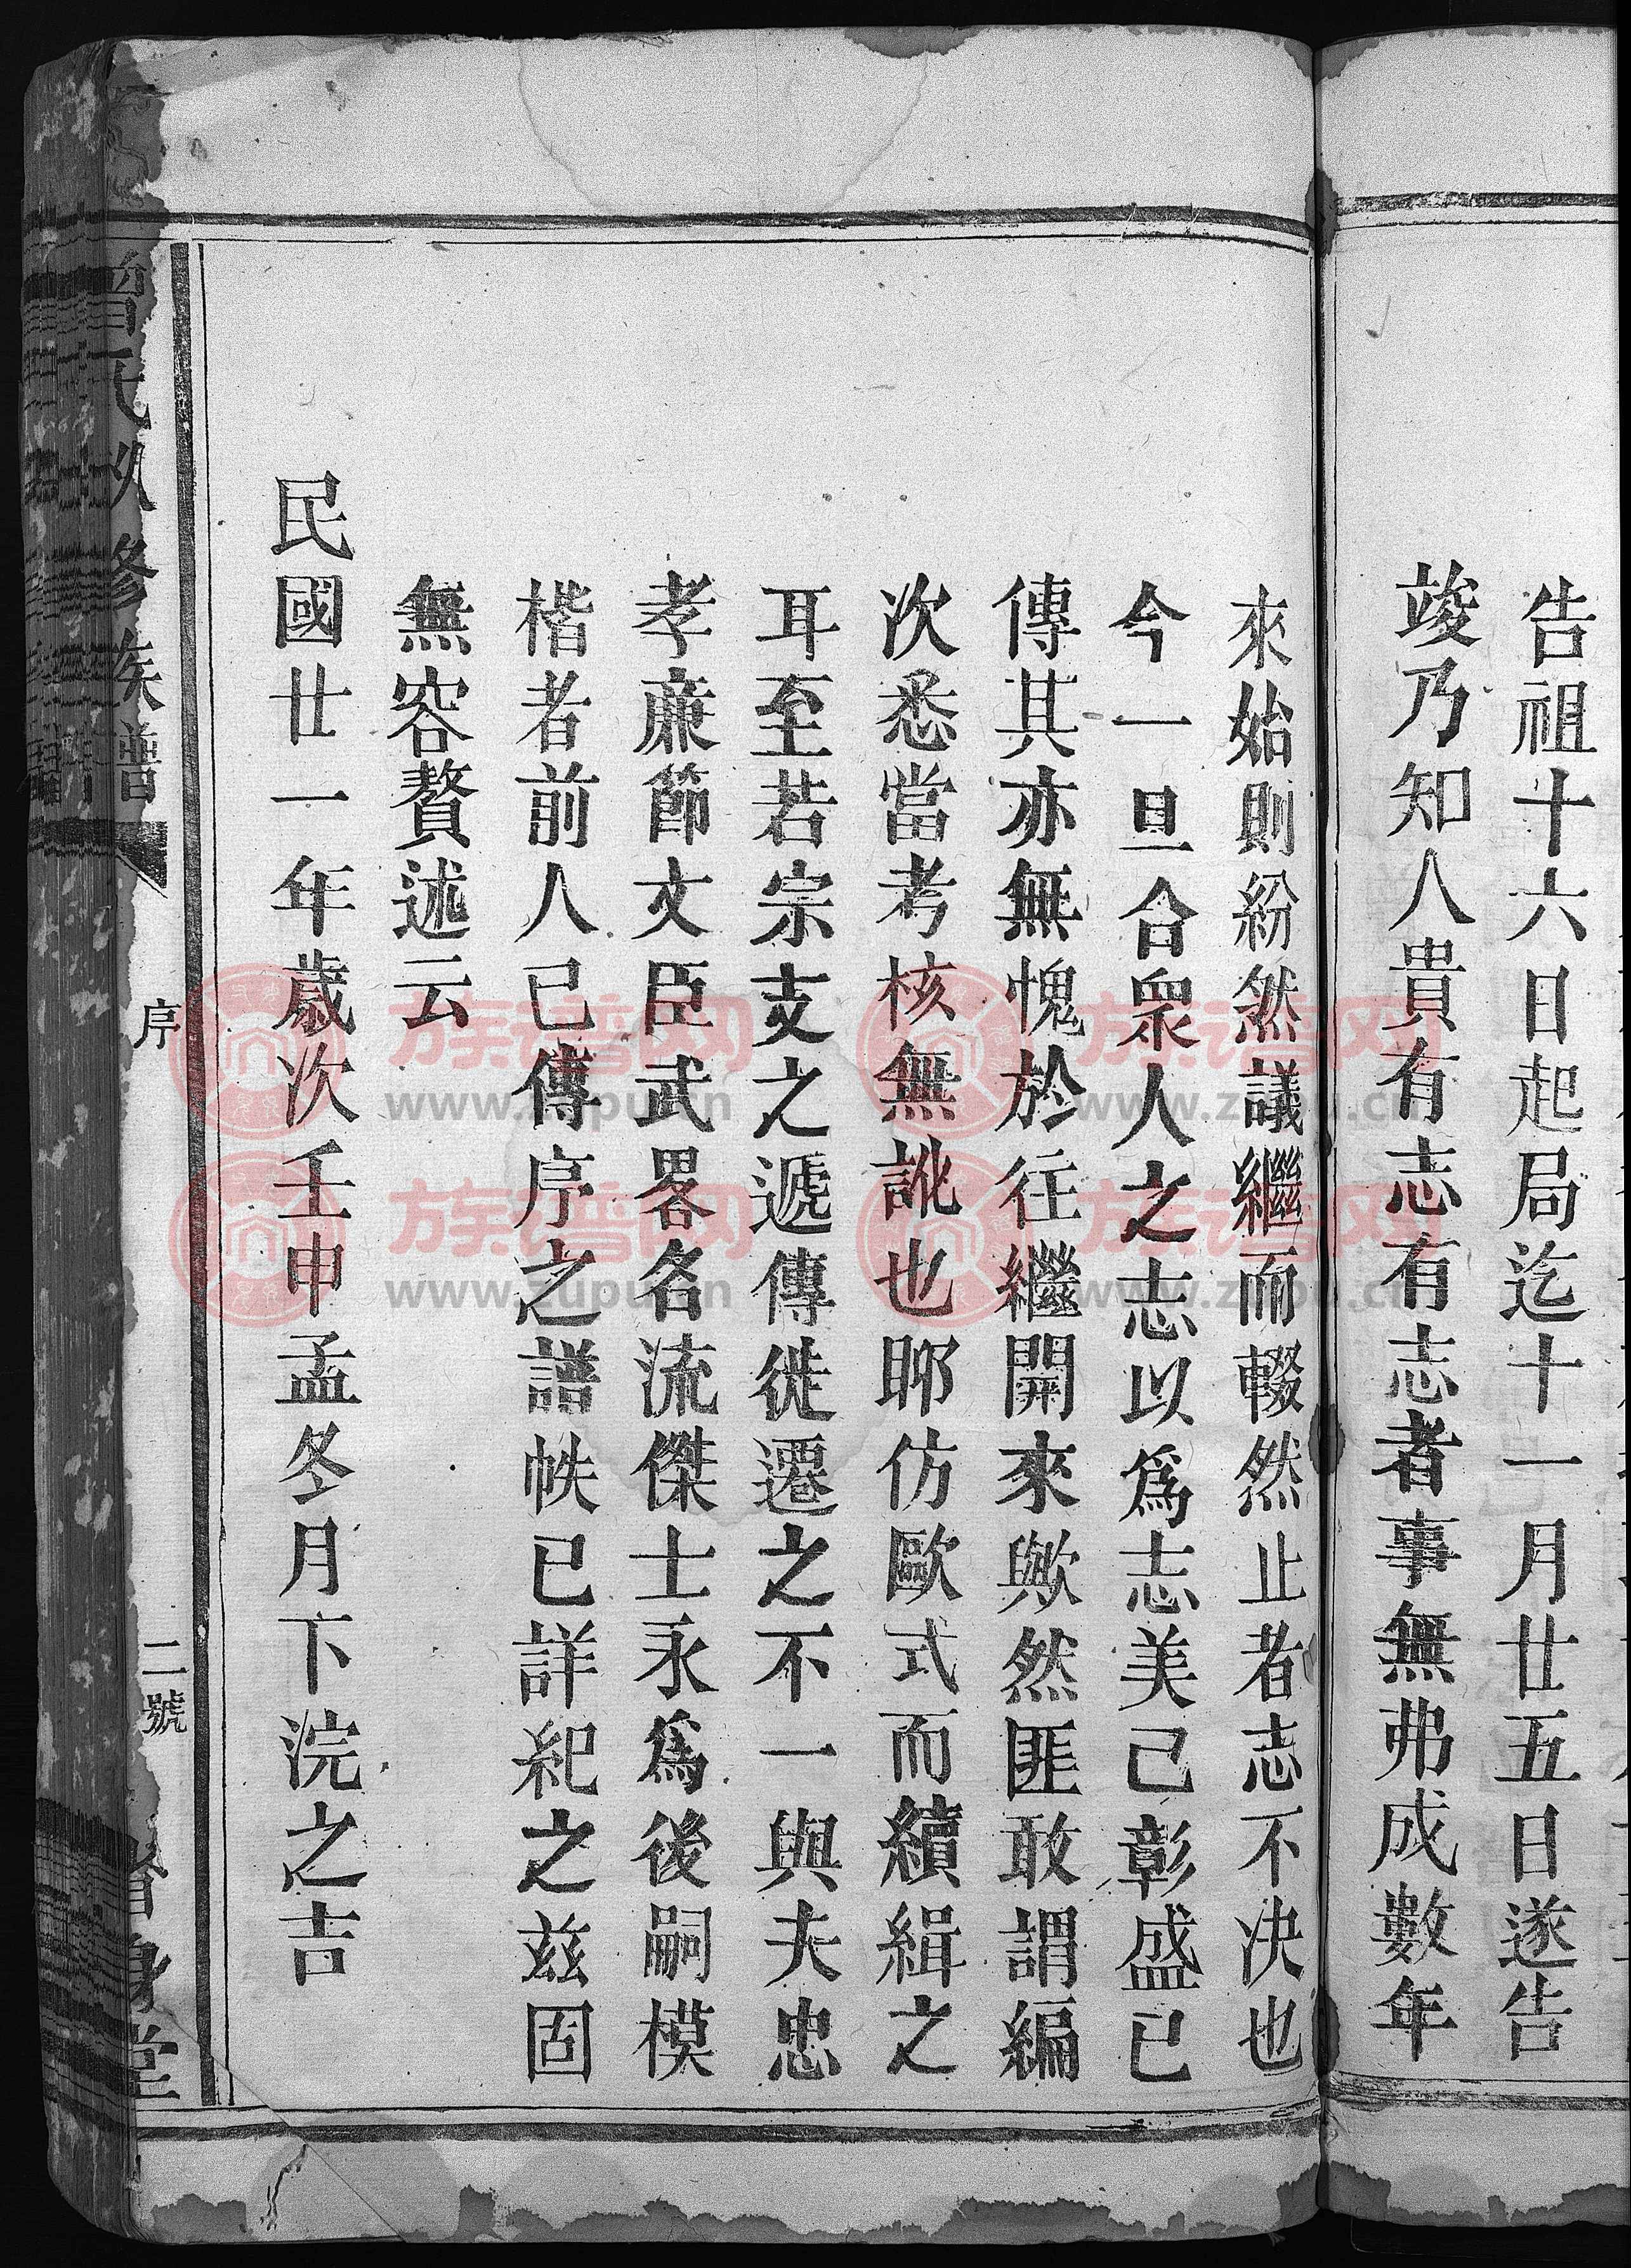 告祖十六日起局迄十一月廿五日遂告
竣乃知人貴有志有志者事無弗成數年
來始則紛然議繼而輟然止者志不决也
今一旦合眾人之志以爲志美已彰盛已
傳其亦無愧於往繼開來歟然匪敢謂編
次悉當考核無訛也耶仿歐式而續緝之
耳至若宗支之遞傳徙遷之不一與夫忠
孝亷節文臣武畧名流傑士永爲後嗣模
楷者前人已傳序之譜帙已詳紀之茲固
無容贅述云
民國廿一年歲次壬申孟冬月下浣之吉
氏 修族譜
序
二號
身堂
族谱网
www.zupu.cn
族谱网
www.zupu.cn
族谱网
www.zupu.cn
族谱网
www.zupu.cn